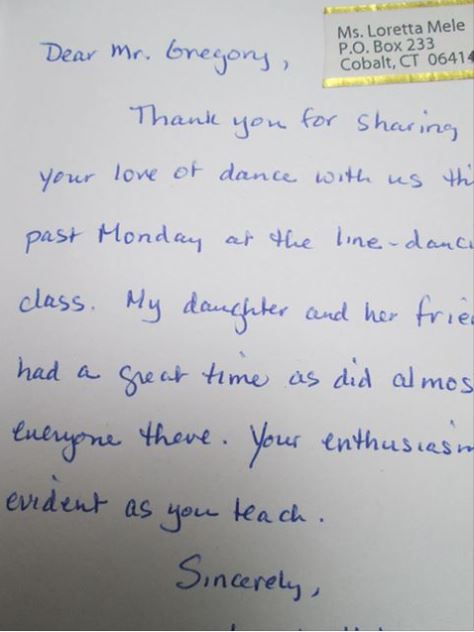 Ms. Loretta Mele
P.O. Box 233
Cobalt, CT 06414
Dear Mr. Gregory,
Thank you for sharing
your love of dance with us thi
past Monday at the line-danci
class. My daughter and her frie
had a great time as did almos
everyone there. Your enthusiasm
evident as you teach.
Sincerely,